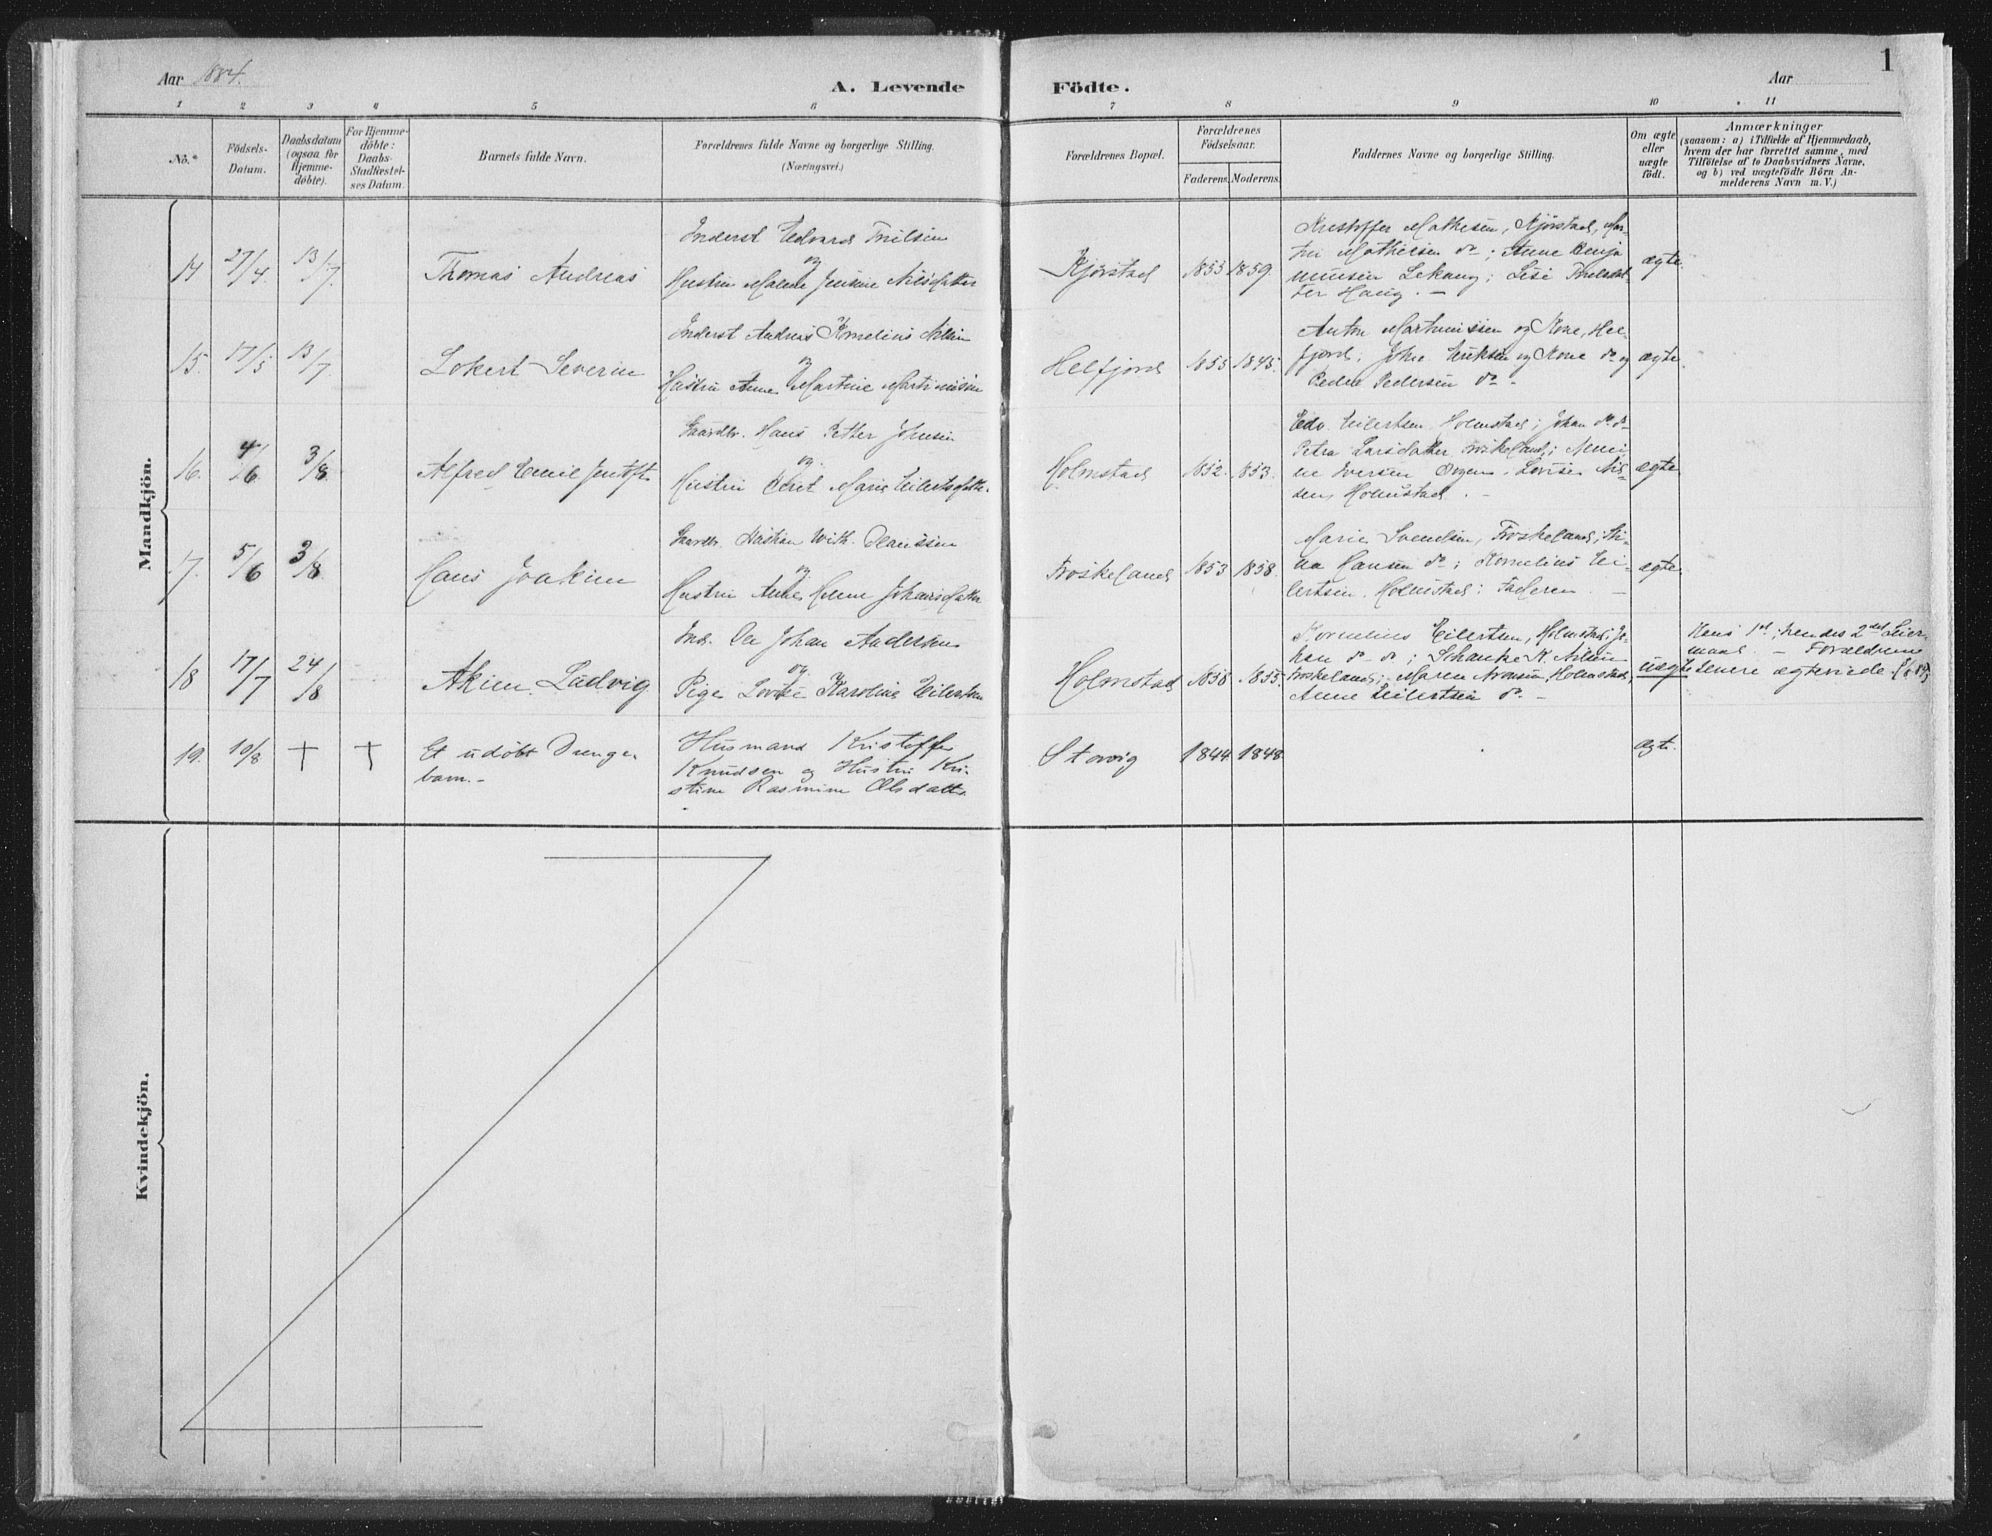 1
Aar 1884.
A. Levende Födte.
Aar
1 2 3 4 5 6 7 8 9 10 11
No.*
Födsels-
Datum.
Daabsdatum
(ogsaa for
Hjemme-
döbte).
For Hjemme-
döbte:
Daabs-
Stadfæstel-
ses Datum.
Barnets fulde Navn.
Forældrenes fulde Navne og borgerlige Stilling.
(Næringsvei.)
Forældrenes Bopæl.
Forældrenes
Födselsaar.
Faderens. Moderens.
Faddernes Navne og borgerlige Stilling.
Om ægte
eller
uægte
födt.
Anmærkninger
(saasom: a) i Tilfælde af Hjemmedaab,
hvem der har forrettet samme, med
Tilföielse af to Daabsvidners Navne,
og b) ved uægtefödte Börn An-
melderens Navn m. V.)
Mandkjön.
14 27/4. 13/7. Thomas Andreas
Inderst Edvard
og
Hustru Malene Jensine Nilsdatter
Kjörstad 1853 1859.
Kristoffer Mathesen, Kjörstad, Mar-
Mathesen do; Anne Benja-
minsen Lekang; Lise
Haug. —
ægte.
15. 17/5 13/7 Lokert Severin
Inderst Andreas Kornelius Nilsen
og
Hustru Anne Martine Martinusen
Helfjord 1855 1845.
Anton Martinussen og Kone, Hel-
fjord; Johe Eriksen og Kone do og
Peder Pedersen do -
ægte.
16. 4/6 3/8 Alfred Emil Jentoft
Gaardbr. Hans Petter Johnsen
og
Hustru Beret Marie Eilertsdatter.
Holmstad 1852. 1853.
Edv. Eilertsen Holmstad; Johan do do
Petra Larsdatter Froskeland;
Iversen Lovise Nil-
sen, Holmstad. -
ægte
17. 5/6 3/8 Hans Joakim
Gaardbr. Kristian With Clausen
og
Hustru Anne Helene Johansdatter
Froskeland 1853 1858.
Marie Svendsen, Froskeland;
Hansen do; Kornelius Ei-
lertsen, Holmstad; Faderen. —
ægte.
18 17/7 24/8 Akim Ludvig
Ind. Ole Johan Andersen
og
Pige Lovise Karoline Eilertsen
Holmstad 1858 1855.
Kornelius Eilertsen, Holmstad; Jo-
han do do; Schanke K. Nilsen
Froskeland; Maren Aronsen Holmstad,
Anne Eilertsen do -
uægte
Hans 1st; hendes 2det Leier-
maal. - Forældrene
senere ægteviede
19. 10/8 + + Et udöbt Drenge-
barn.-
Husmand Kristoffer
Knudsen og Hustru Kri-
stine Rasmine Olsdatter
Storvig 1844. 1848.
ægte.
Kvindekjön.